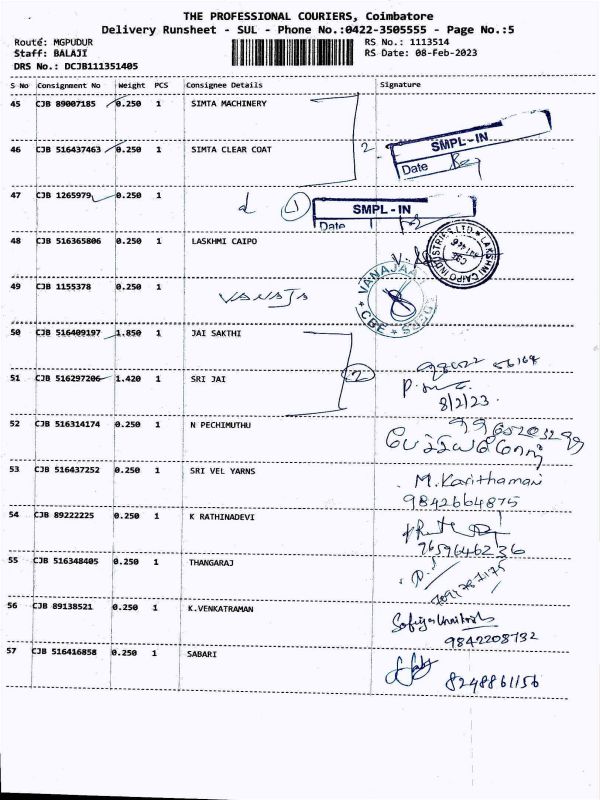 THE PROFESSIONAL COURIERS, Coimbatore
Delivery Runsheet - SUL - Phone No.:0422-3505555 - Page No.:5
Route: MGPUDUR
RS No.: 1113514
Staff: BALAJI
RS Date: 08-Feb-2023
DRS No.: DCJB111351405
S No Consignment No Weight PCS Consignee Details Signature
45 CJB 89007185 0.250 1 SIMTA MACHINERY
46 CJB 516437463 0.250 1 SIMTA CLEAR COAT 2
SMPL-IN
Date
47 CJB 1265979 0.250 1 1
SMPL-IN
Date
48 CJB 516365806 0.250 1 LASKHMI CAIPO
LAKSHMI CAIPO INDUSTRIES LTD.
49 CJB 1155378 0.250 1 VANAJA
CBE
50 CJB 516409197 1.850 1 JAI SAKTHI
51 CJB 516297206 1.420 1 SRI JAI 2
8/2/23
52 CJB 516314174 0.250 1 N PECHIMUTHU
53 CJB 516437252 0.250 1 SRI VEL YARNS M.Karithamani
9842664875
54 CJB 89222225 0.250 1 K RATHINADEVI
7659646236
55 CJB 516348405 0.250 1 THANGARAJ
56 CJB 89138521 0.250 1 K.VENKATRAMAN
9842208732
57 CJB 516416858 0.250 1 SABARI
8248861156